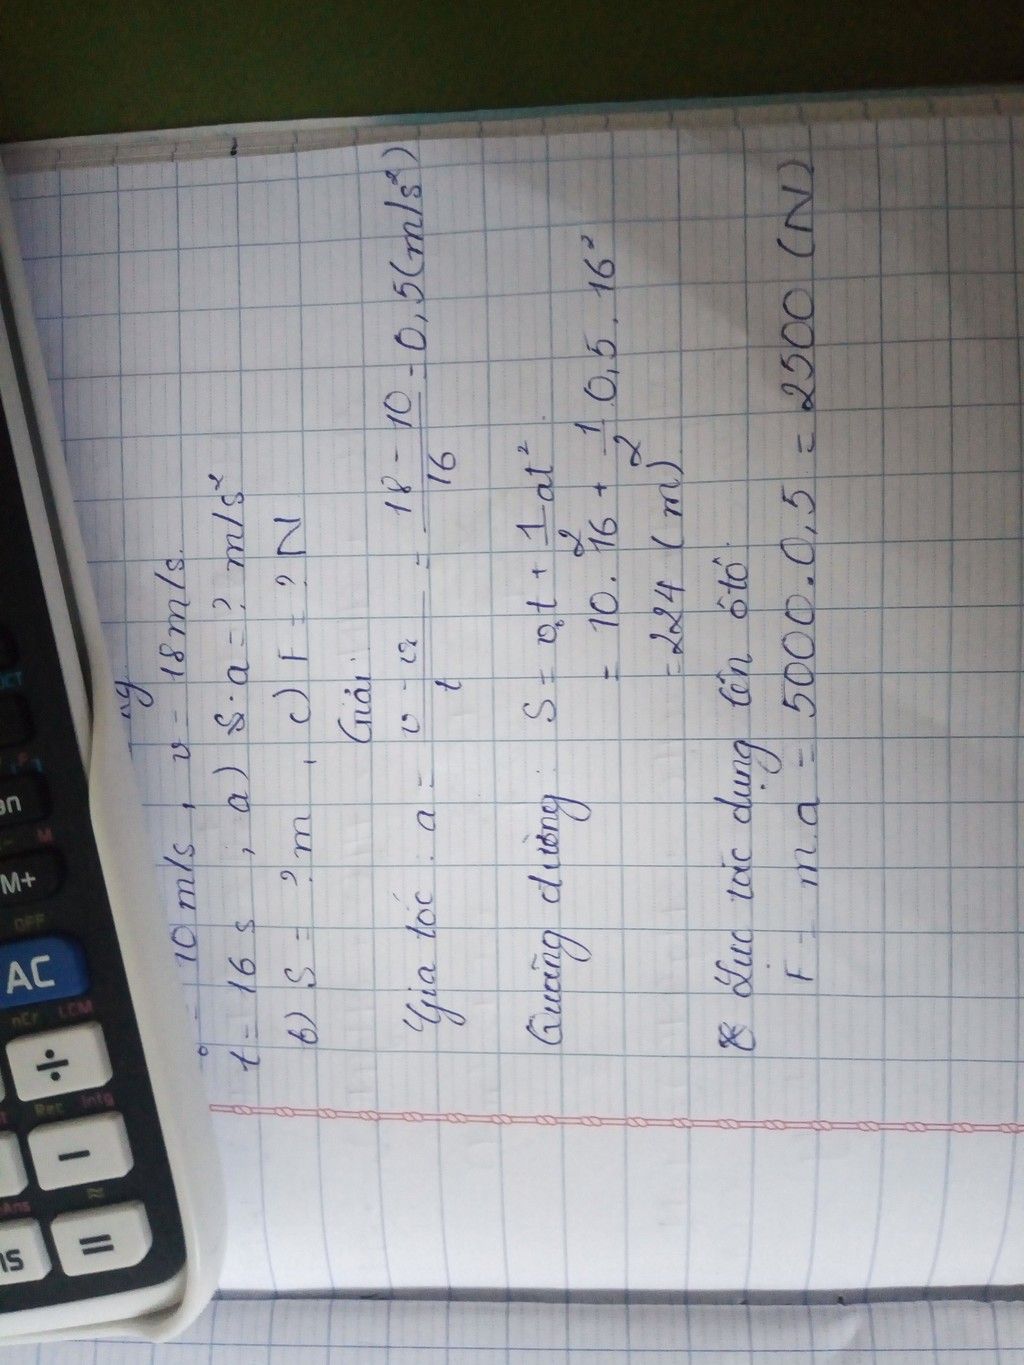 = 10 m/s, v = 18 m/s.
t = 16 s, a) a = ? m/s²
b) S = ? m, c) F = ? N
Giải:
Gia tốc: a = \frac{v - v₀}{t} = \frac{18 - 10}{16} = 0,5 (m/s²)
Quãng đường: S = v₀t + \frac{1}{2}at².
= 10.16 + \frac{1}{2}0,5.16²
= 224 (m)
Lực tác dụng lên ôtô.
F = m.a = 5000.0,5 = 2500 (N)
AC
M+
OFF
nCr
LCM
÷
Rec
Intg
−
≈
=